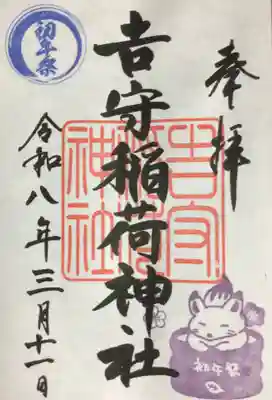 奉拝
吉守稲荷神社
令和八年三月十一日
初午祭
吉守
稲荷
神社
初午祭